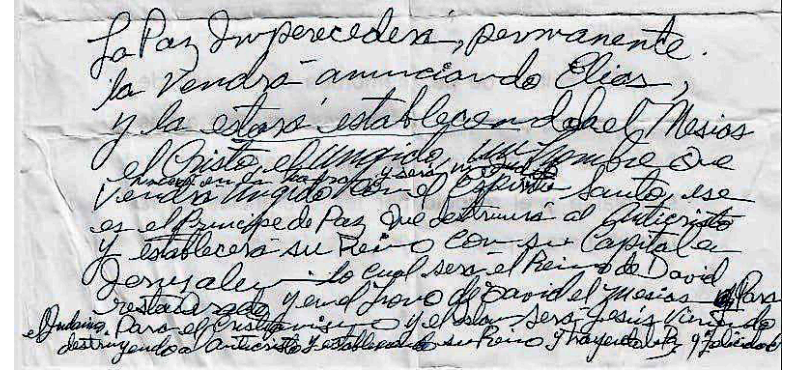 La Paz Imperecedera, permanente.
la vendrá anunciando Elias,
y la estará estableciendo el Mesias
el Cristo, el Ungido, un hombre que
nacerá en la tierra y será
Vendrá Ungido con el Espiritu Santo, ese
es el Principe de Paz que destruirá al Anticristo
y establecerá su Reino con su Capital en
Jerusalen lo cual será el Reino de David
restaurado y en el Trono de David el Mesias Para
el Judaismo. Para el Cristianismo y el Islam será Jesus viniendo
destruyendo a Anticristo y estableciendo su Reino y trayendo la Paz y felicidad